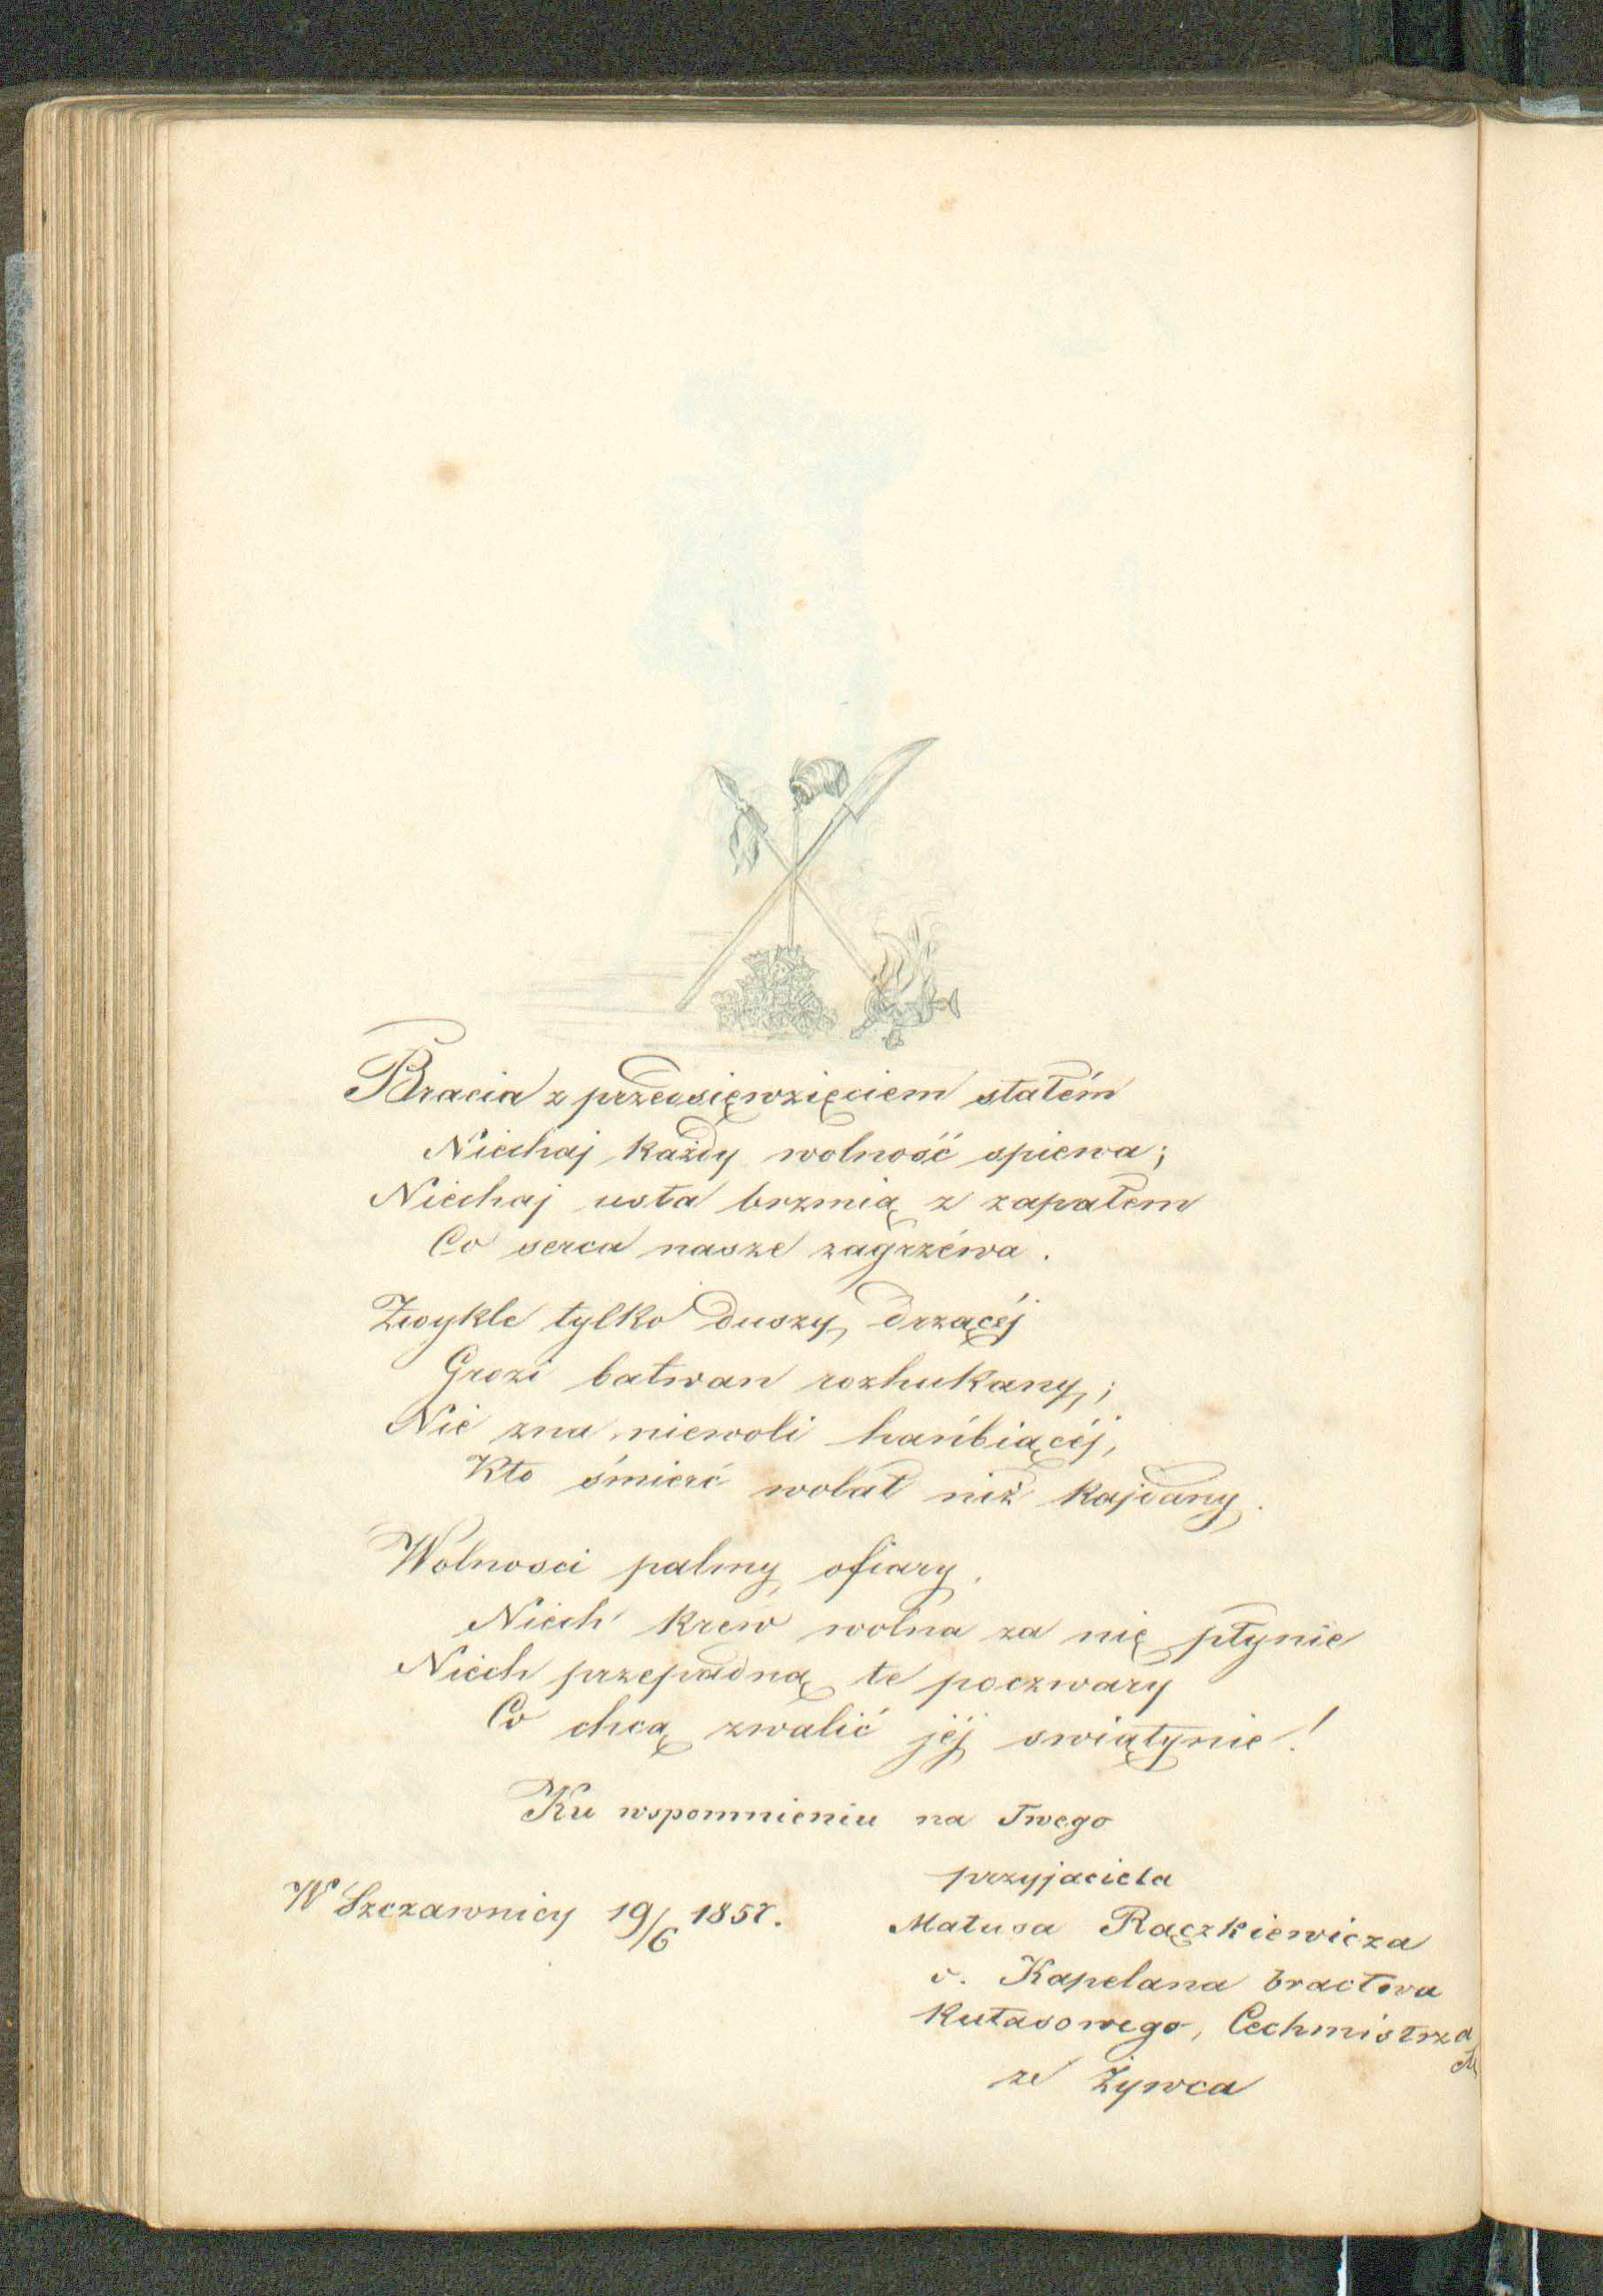 Bracia z przedsięwzięciem stałém
Niechaj każdy wolność spiewa;
Niechaj usta brzmią z zapałem
Co serca nasze zagrzéwa.
Zwykle tylko duszy drzącéj
Grozi bałwan rozhukany;
Nie zna niewoli hańbiącéj,
Kto śmierć wolał niż kajdany.
Wolnosci palmy ofiary,
Niech krew wolna za nię płynie
Niech przepadną te poczwary
Co chcą zwalić jéj swiątynie!
Ku wspomnieniu na Twego
przyjaciela
W Szczawnicy 19/6 1857.
Matusa Rączkiewicza
Kapelana bractwa
Kutasowego, Cechmistrza
ze Żywca